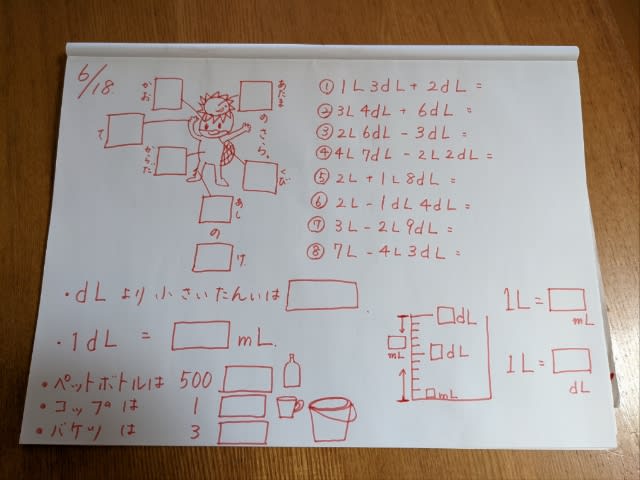 6/18.
かお
あたま
のさら。
て
からだ
くび
あし
の
け
① 1L 3dL + 2dL =
② 3L 4dL + 6dL =
③ 2L 6dL - 3dL =
④ 4L 7dL - 2L 2dL =
⑤ 2L + 1L 8dL =
⑥ 2L - 1dL 4dL =
⑦ 3L - 2L 9dL =
⑧ 7L - 4L 3dL =
・dLより小さいたんいは
・1dL = mL.
・ペットボトルは 500
・コップは 1
・バケツは 3
dL
mL
dL
mL
1L =
mL
1L =
dL